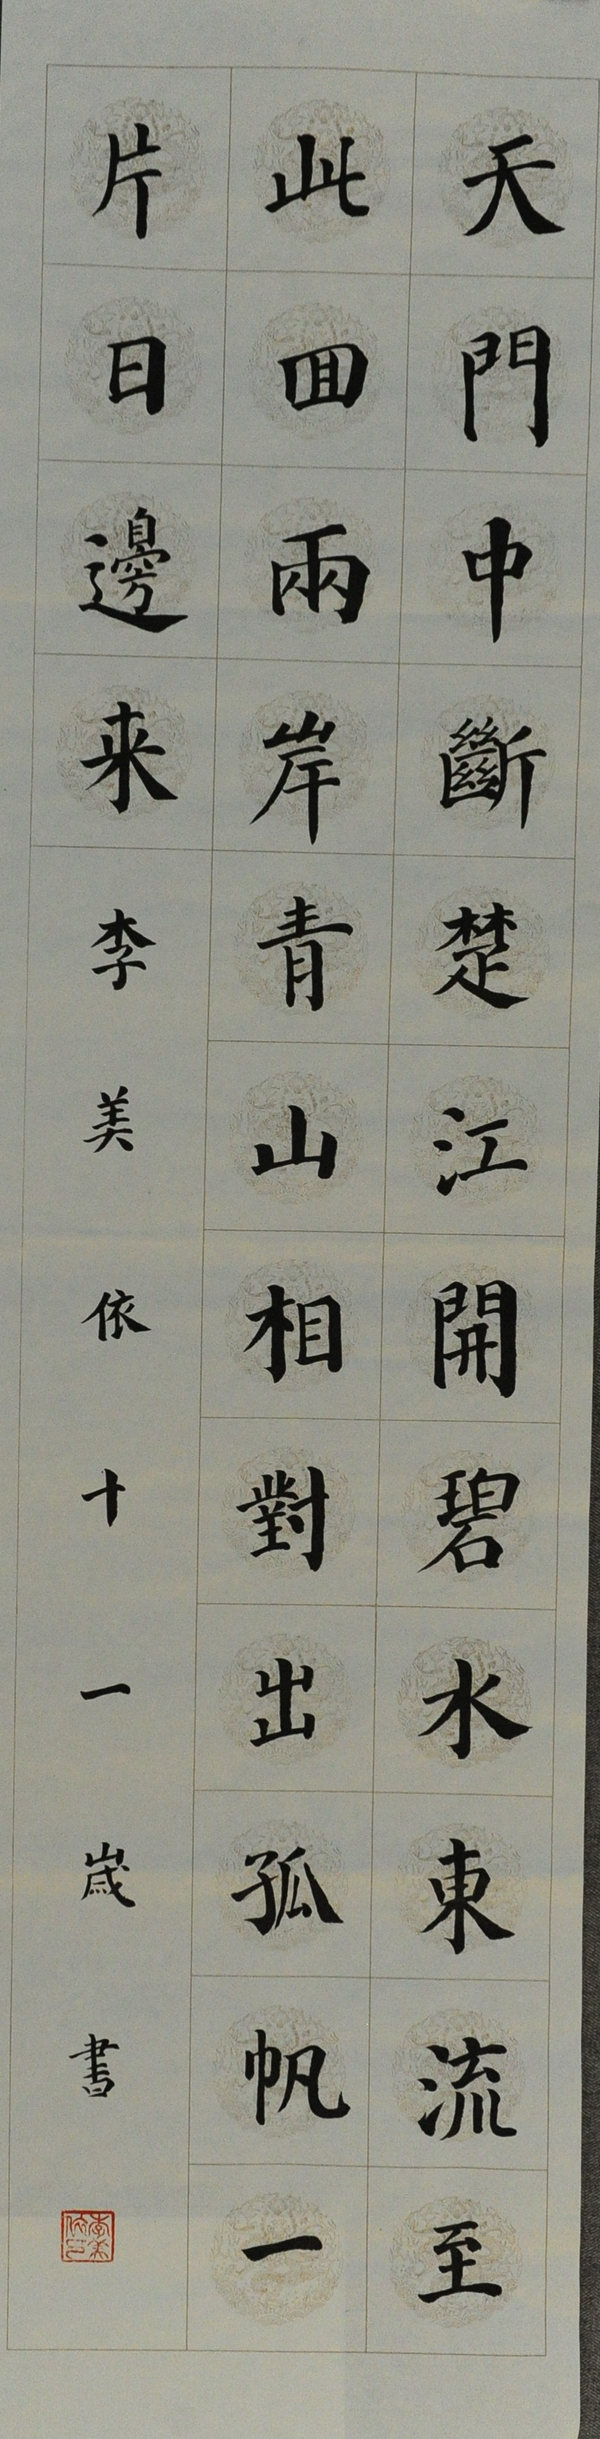 天門中斷楚江開碧水東流至
此回兩岸青山相對出孤帆一
片日邊来李美依十一歲書
李美依印